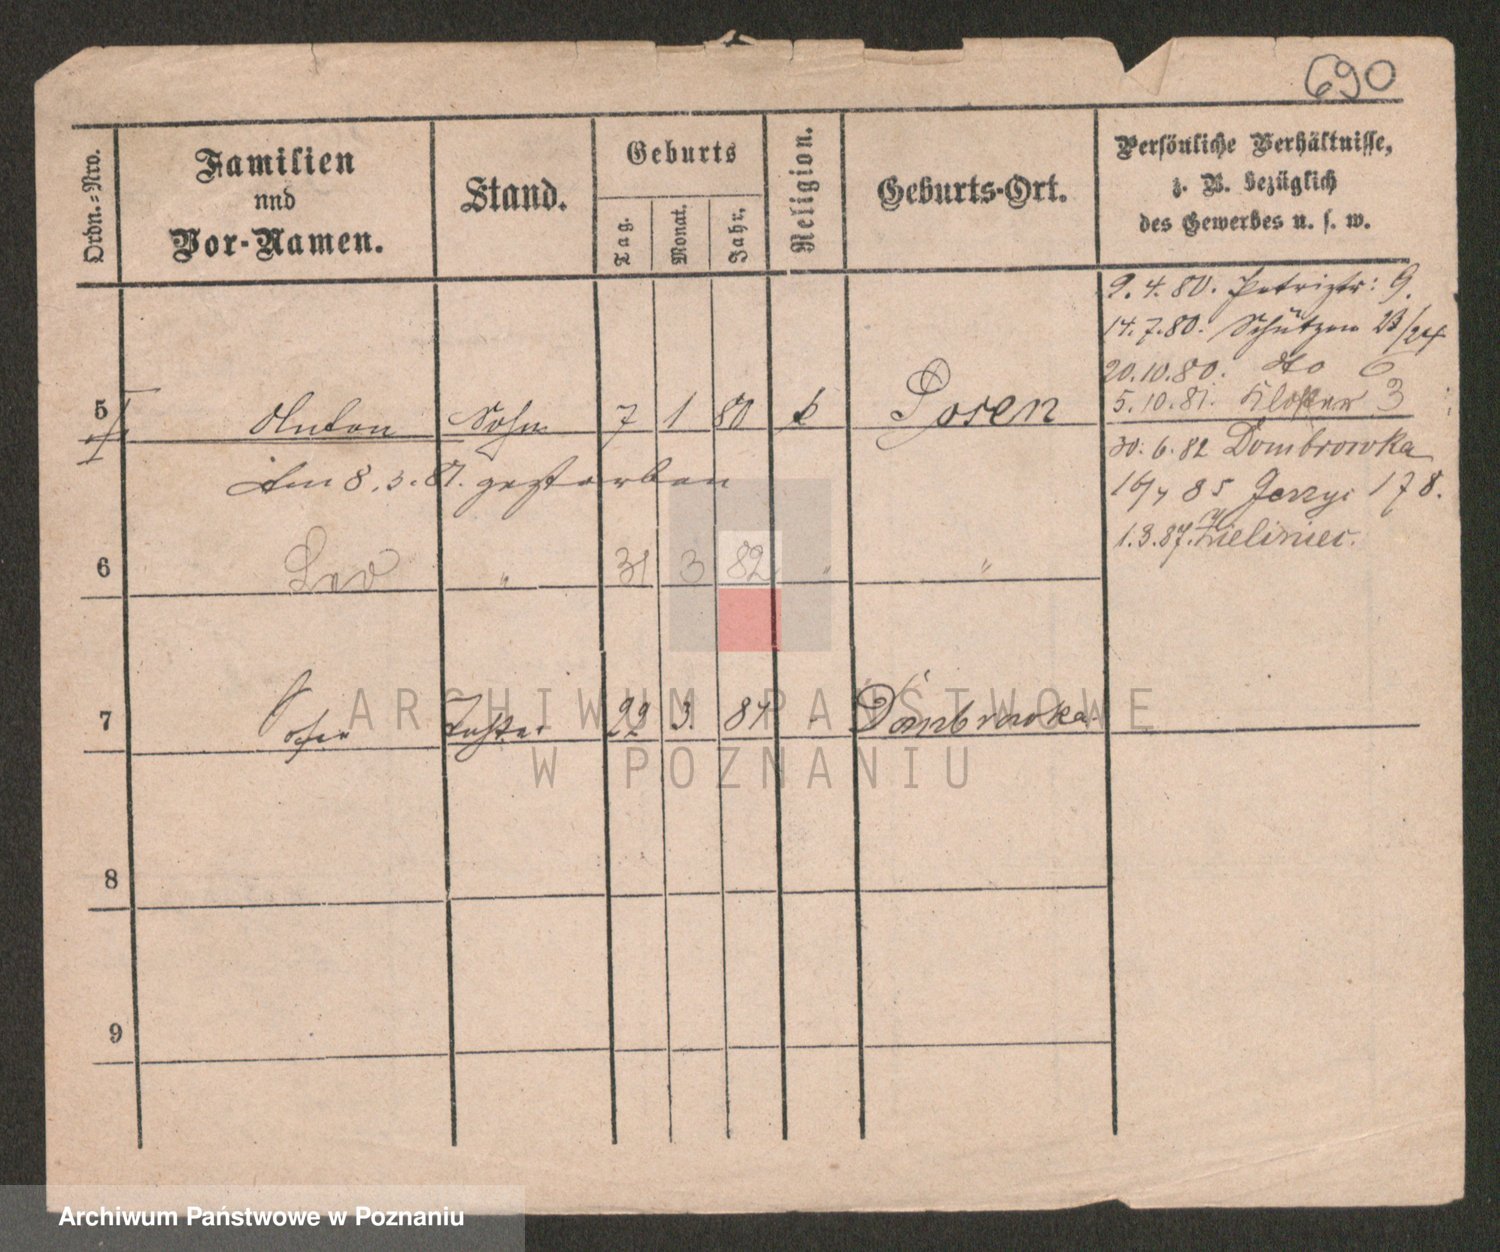 690
Ordn.-Nro.
Familien
und
Vor-Namen.
Stand.
Geburts
Tag.
Monat.
Jahr.
Religion.
Geburts-Ort.
Persönliche Verhältnisse,
z. B. bezüglich
des Gewerbes u. s. w.
9. 4. 80. Petristr: 9.
14. 7. 80. Schützen 23/24
20. 10. 80. do 6
5. 10. 81. Kloster 3
5 Anton Sohn 7 1 80 k Posen
30. 6. 82 Dombrowka
am 8. 3. 81. gestorben
16/7 85 Jerzyc 178.
1. 3. 87. Zieliniec.
6 Leo " 31 3 82 " "
7 Tochter 29 3. 84 Dombrowka
8
9
ARCHIWUM PAŃSTWOWE
W POZNANIU
Archiwum Państwowe w Poznaniu